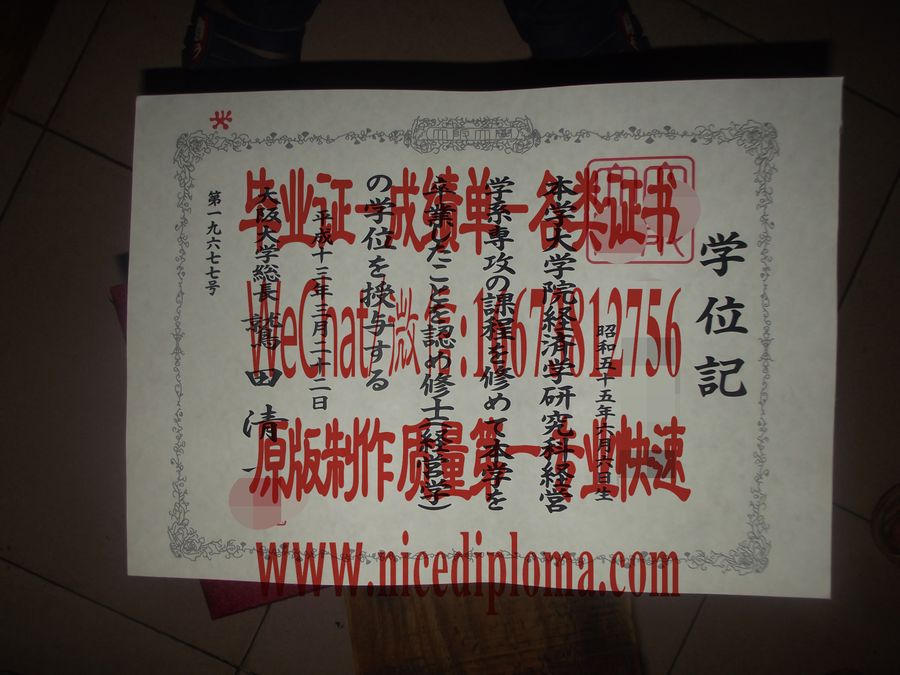 大阪大学
学位記
昭和五十五年六月六日生
本学大学院経済学研究科経営
学系専攻の課程を修めて本学を
卒業したことを認め修士(経営学)
の学位を授与する
平成十三年三月二十二日
大阪大学総長 鷲田清一
第一九六七七号
毕业证-成绩单-各类证书
WeChat/微信:
原版制作 质量第一 专业快速
www.nicediploma.com